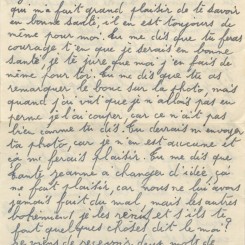 qui m'a fait grand plaisir de te savoir
en bonne santé, il en est toujours de
même pour moi. tu me dis que tu feras
courage t'en que je serais en bonne
santé je te jure que moi j'en fais de
même pour toi. Tu me dis que tu as
remarquer le bouc sur la photo, mais
quand j'ai vut que je n'allais pas en
perme je l'ai couper, car ce n'ait pas
bien comme tu dis. Tu devrais m'envoyer
ta photo, car je n'en est aucune et
sà me ferais plaisir. Tu me dis que
tante jeanne a changer d'idée, sà
ne fait plaisir, car nous ne lui avons
jamais fait du mal, mais les autres
bohement je les et s'ils te
font quelques choses dit le moi?
de recevoir deux mots de